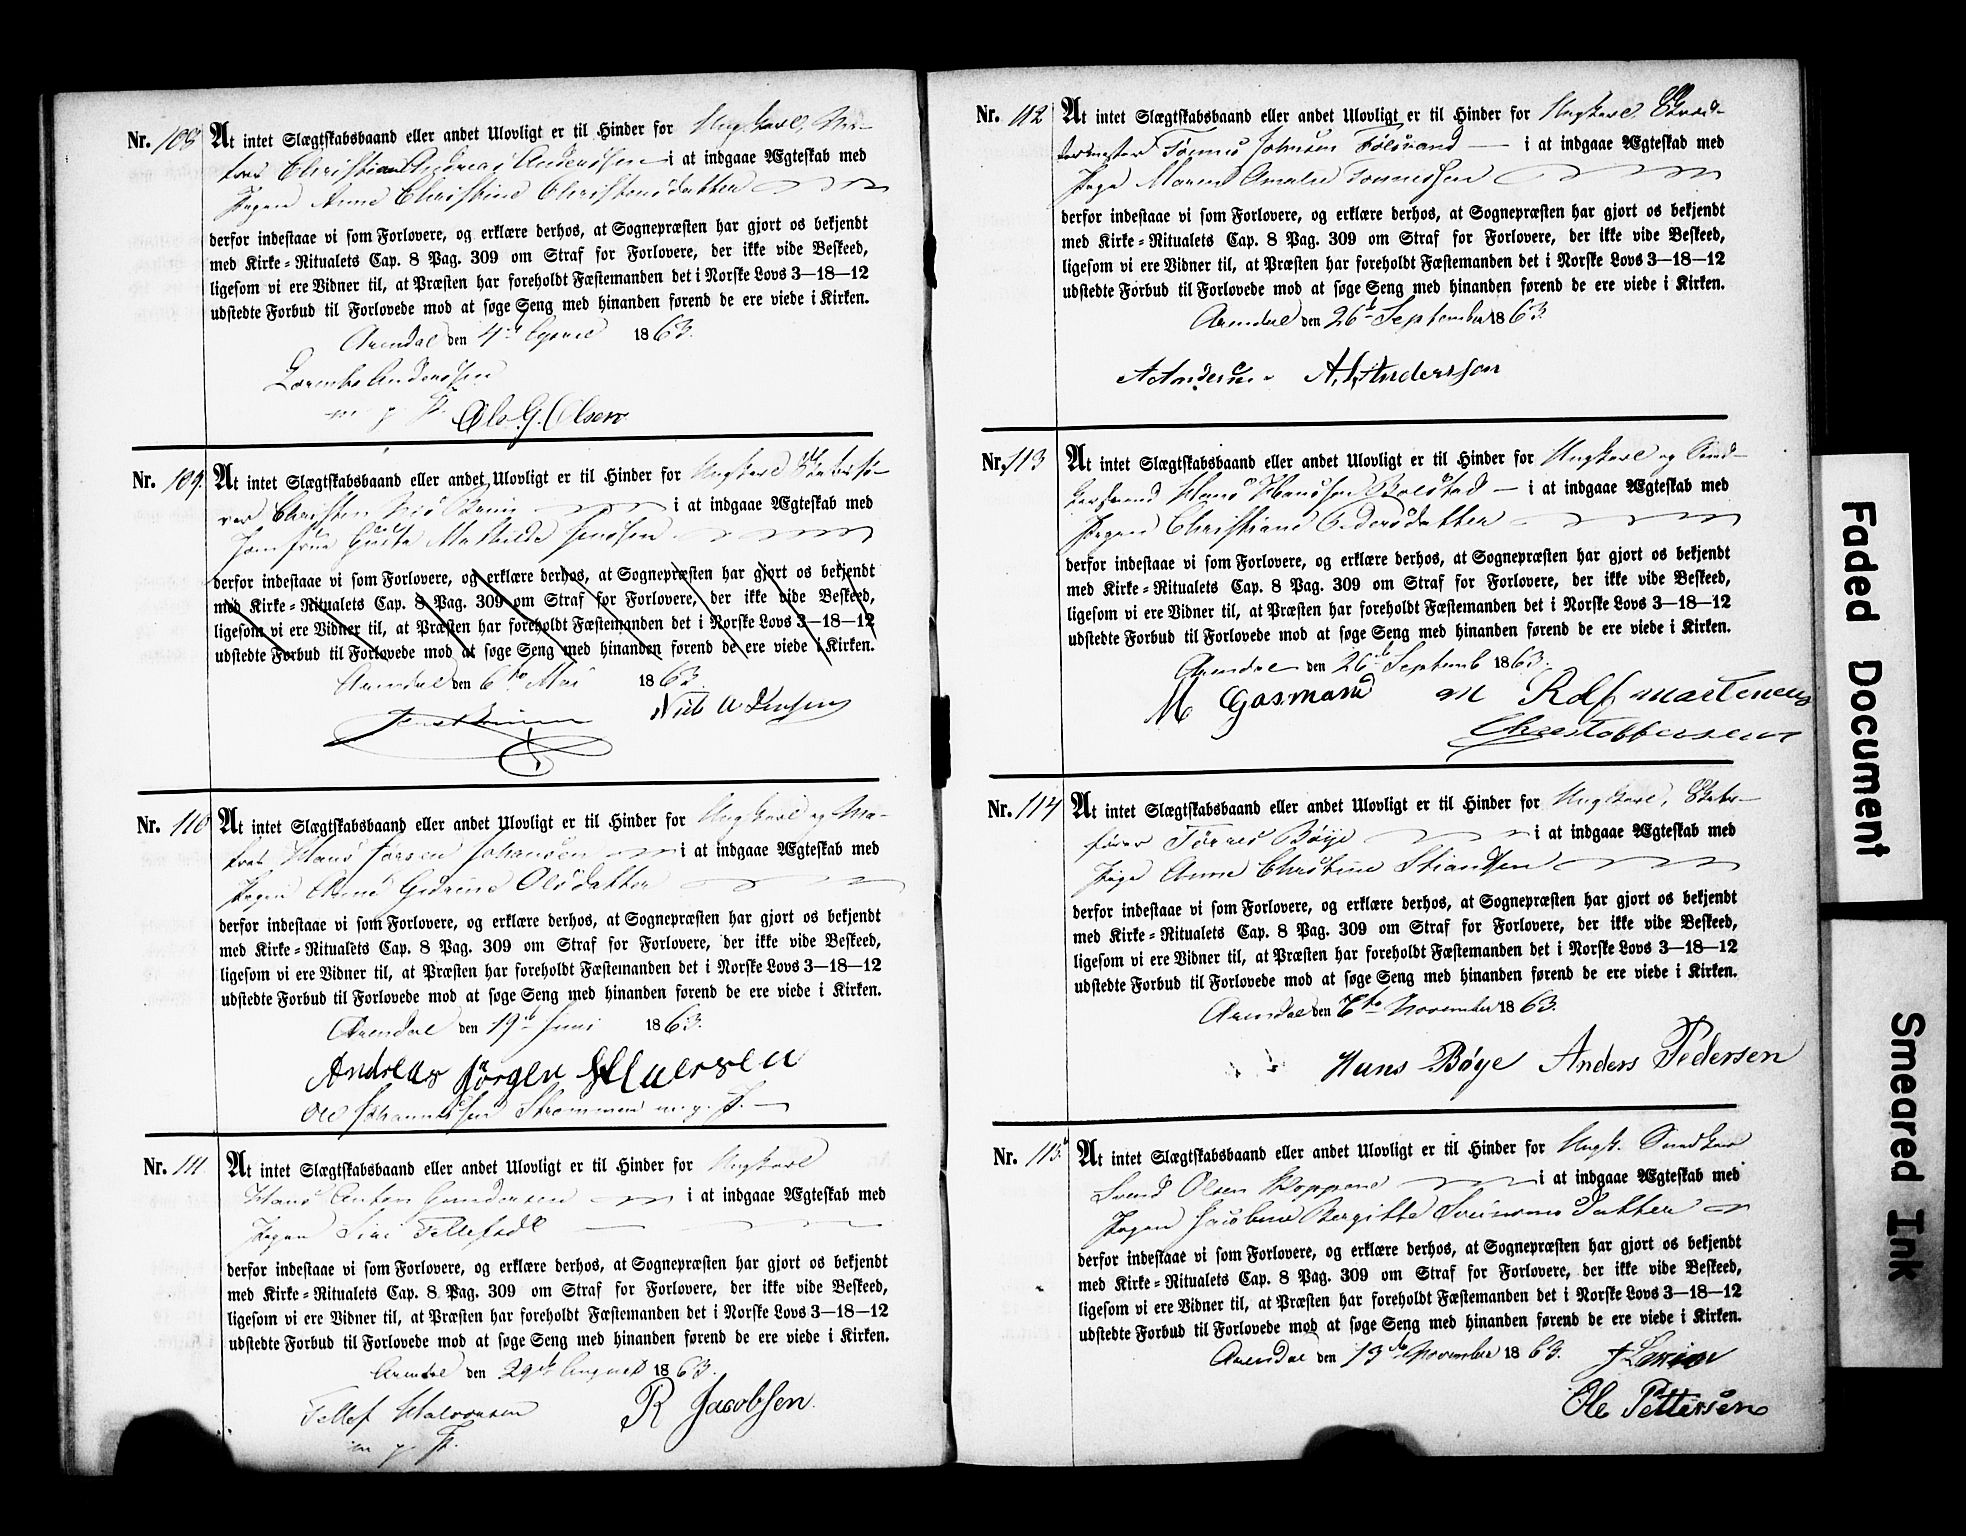 Nr. 108 At intet Slægtskabsbaand eller andet Ulovligt er til Hinder for Ungkarl, Ma-
tros Christian Andreas Anderssen i at indgaae Ægteskab med
Pigen Anne Christine Christensdatter
derfor indestaae vi som Forlovere, og erklære derhos, at Sognepræsten har gjort os bekjendt
med Kirke-Ritualets Cap. 8 Pag. 309 om Straf for Forlovere, der ikke vide Beskeed,
ligesom vi ere Vidner til, at Præsten har foreholdt Fæstemanden det i Norske Lovs 3—18—12
udstedte Forbud til Forlovede mod at søge Seng med hinanden førend de ere viede i Kirken.
Arendal den 4de 1863.
Anderssen
m. p. P. Ole G. Olsen
Nr. 109. At intet Slægtskabsbaand eller andet Ulovligt er til Hinder for Ungkarl Skibsfø-
rer Christen i at indgaae Ægteskab med
Jomfrue Mathilde Jenssen
derfor indestaae vi som Forlovere, og erklære derhos, at Sognepræsten har gjort os bekjendt
med Kirke-Ritualets Cap. 8 Pag. 309 om Straf for Forlovere, der ikke vide Beskeed,
ligesom vi ere Vidner til, at Præsten har foreholdt Fæstemanden det i Norske Lovs 3—18—12
udstedte Forbud til Forlovede mod at søge Seng med hinanden førend de ere viede i Kirken.
Arendal den 6te Mai 1863.
Niels
Nr. 110 At intet Slægtskabsbaand eller andet Ulovligt er til Hinder for Ungkarl og Ma-
tros Hans Johansen i at indgaae Ægteskab med
Pigen Anne Gurine Olsdatter
derfor indestaae vi som Forlovere, og erklære derhos, at Sognepræsten har gjort os bekjendt
med Kirke-Ritualets Cap. 8 Pag. 309 om Straf for Forlovere, der ikke vide Beskeed,
ligesom vi ere Vidner til, at Præsten har foreholdt Fæstemanden det i Norske Lovs 3—18—12
udstedte Forbud til Forlovede mod at søge Seng med hinanden førend de ere viede i Kirken.
Arendal den 19de Juni 1863.
Andreas Jørgen
Ole Johannessen Strømmen m. p. P.
Nr. 111 At intet Slægtskabsbaand eller andet Ulovligt er til Hinder for Ungkarl
Hans Anton Gundersen i at indgaae Ægteskab med
Pigen Sine Tellefsdt
derfor indestaae vi som Forlovere, og erklære derhos, at Sognepræsten har gjort os bekjendt
med Kirke-Ritualets Cap. 8 Pag. 309 om Straf for Forlovere, der ikke vide Beskeed,
ligesom vi ere Vidner til, at Præsten har foreholdt Fæstemanden det i Norske Lovs 3—18—12
udstedte Forbud til Forlovede mod at søge Seng med hinanden førend de ere viede i Kirken.
Arendal den 29de August 1863.
Tellef Halvorsen R Jacobsen
m. p. P.
Nr. 112 At intet Slægtskabsbaand eller andet Ulovligt er til Hinder for Ungkarl,
Tønnes Johnsen i at indgaae Ægteskab med
Pige Maren Amalie Tønnessen
derfor indestaae vi som Forlovere, og erklære derhos, at Sognepræsten har gjort os bekjendt
med Kirke-Ritualets Cap. 8 Pag. 309 om Straf for Forlovere, der ikke vide Beskeed,
ligesom vi ere Vidner til, at Præsten har foreholdt Fæstemanden det i Norske Lovs 3—18—12
udstedte Forbud til Forlovede mod at søge Seng med hinanden førend de ere viede i Kirken.
Arendal den 26de September 1863.
A Andersen A. Andersson
Nr. 113 At intet Slægtskabsbaand eller andet Ulovligt er til Hinder for Ungkarl og Sned-
kersvend Hans Hanssen Bolstad i at indgaae Ægteskab med
Pigen Christiane Pedersdatter
derfor indestaae vi som Forlovere, og erklære derhos, at Sognepræsten har gjort os bekjendt
med Kirke-Ritualets Cap. 8 Pag. 309 om Straf for Forlovere, der ikke vide Beskeed,
ligesom vi ere Vidner til, at Præsten har foreholdt Fæstemanden det i Norske Lovs 3—18—12
udstedte Forbud til Forlovede mod at søge Seng med hinanden førend de ere viede i Kirken.
Arendal den 26de Septemb 1863.
M Gasmand
Nr. 114 At intet Slægtskabsbaand eller andet Ulovligt er til Hinder for Ungkarl, Skibs-
fører Tørres Bøye i at indgaae Ægteskab med
Pige Anne Christine Stiansen
derfor indestaae vi som Forlovere, og erklære derhos, at Sognepræsten har gjort os bekjendt
med Kirke-Ritualets Cap. 8 Pag. 309 om Straf for Forlovere, der ikke vide Beskeed,
ligesom vi ere Vidner til, at Præsten har foreholdt Fæstemanden det i Norske Lovs 3—18—12
udstedte Forbud til Forlovede mod at søge Seng med hinanden førend de ere viede i Kirken.
Arendal den 6te November 1863.
Hans Bøye Anders Pedersen
Nr. 115 At intet Slægtskabsbaand eller andet Ulovligt er til Hinder for Ungk. Snedker
Svend Olsen i at indgaae Ægteskab med
Pigen Jacobine Bergitte
derfor indestaae vi som Forlovere, og erklære derhos, at Sognepræsten har gjort os bekjendt
med Kirke-Ritualets Cap. 8 Pag. 309 om Straf for Forlovere, der ikke vide Beskeed,
ligesom vi ere Vidner til, at Præsten har foreholdt Fæstemanden det i Norske Lovs 3—18—12
udstedte Forbud til Forlovede mod at søge Seng med hinanden førend de ere viede i Kirken.
Arendal den 13de November 1863.
Ole Pettersen
Faded Document
Smeared Ink